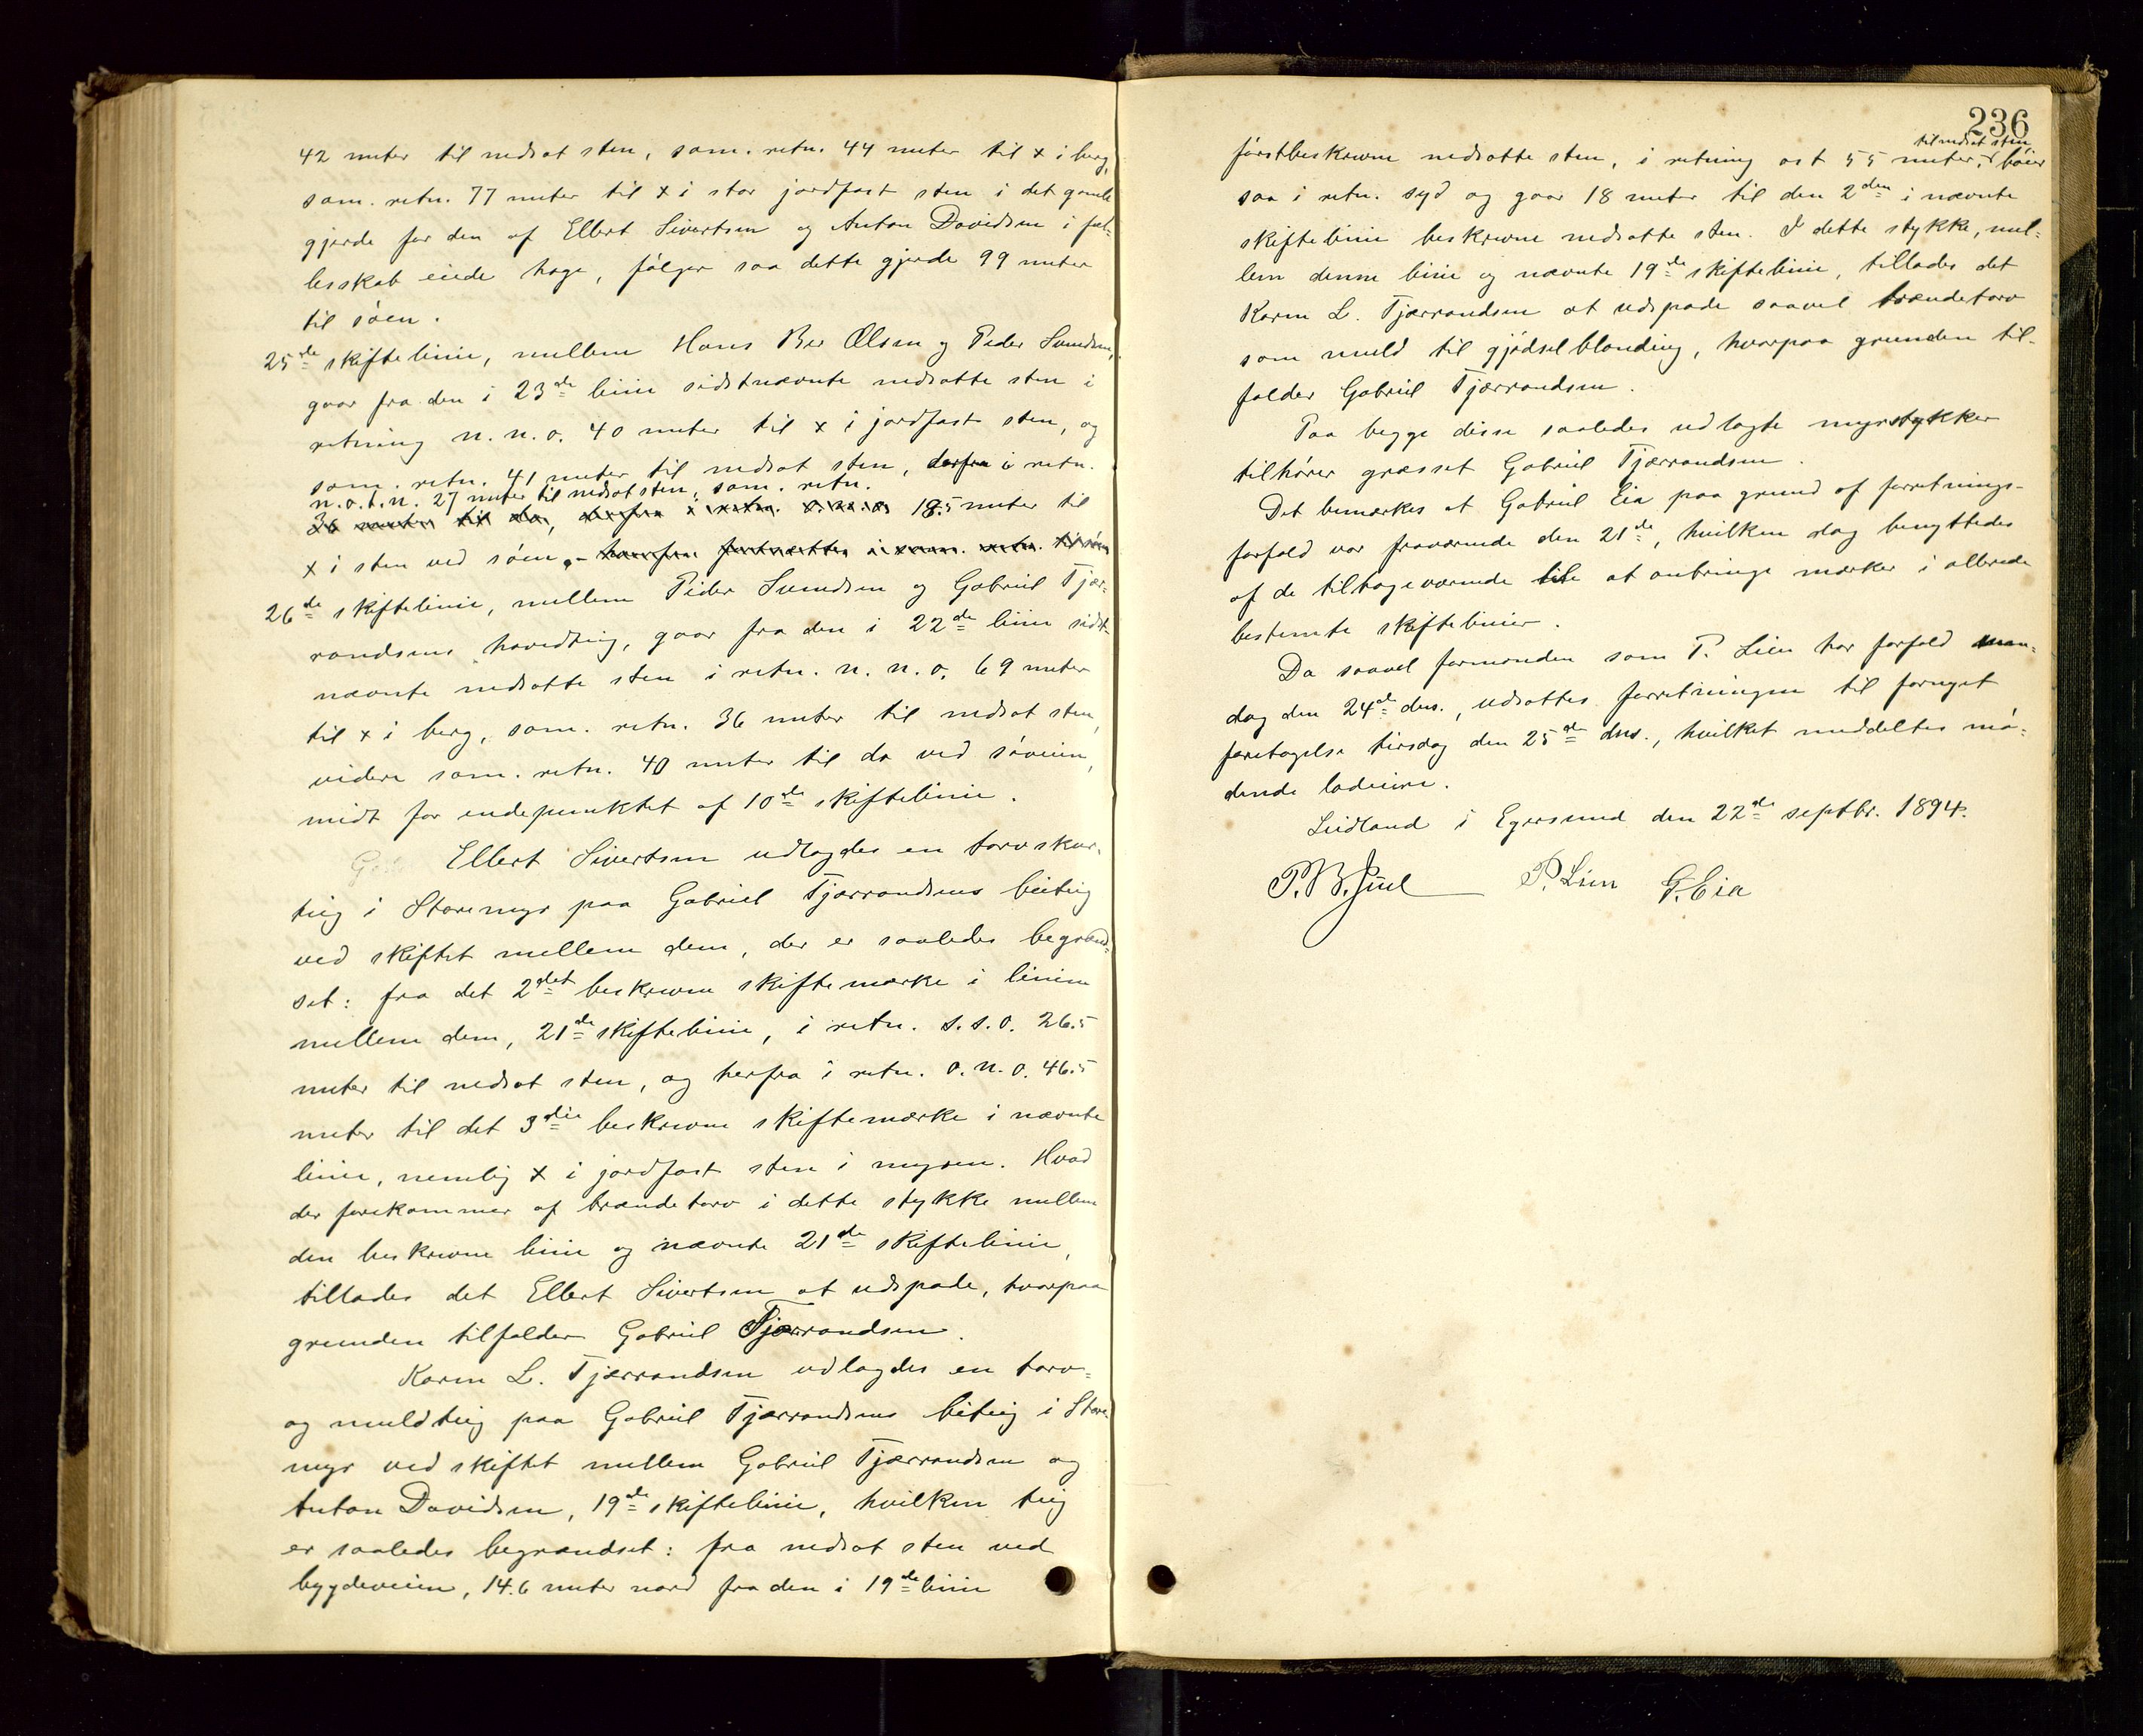 42 meter til nedsat sten, sam. retn. 44 meter til x i berg,
sam. retn. 77 meter til x i stor jordfast sten i det gamle
gjerde for den af Ellert Sivertsen og Anton Davidsen i fæl-
lesskab eiede hage, følger saa dette gjerde 99 meter
til søen.
25de skiftelinie, mellem Hans Ber Olsen og Peder Svendsen,
gaar fra den i 23de linie sidstnævnte nedsatte sten i
retning n. n. o. 40 meter til x i jordfast sten, og
sam. retn. 41 meter til nedsat sten, derfra i retn.
n. o. t. n. 27 meter til nedsat sten, sam. retn.
36 meter til do, derfra i retn. o. n. o. 18.5 meter til
x i sten ved søen. - herfra fortsættes i sam. retn. til søen
26de skiftelinie, mellem Peder Svendsen og Gabriel Tjær-
randsens hovedteig, gaar fra den i 22de linie sidst-
nævnte nedsatte sten i retn. n. n. o. 69 meter
til x i berg, sam. retn. 36 meter til nedsat sten,
videre sam. retn. 40 meter til do ved søveien,
midt for endepunktet af 10de skiftelinie.
Ellert Sivertsen udlagdes en torvskur-
teig i Storemyr paa Gabriel Tjærrandsens beiteig
ved skiftet mellem dem, der er saaledes begrænd-
set: fra det 2det beskrevne skiftemærke i linien
mellem dem, 21de skiftelinie, i retn. s. s. o. 26.5
meter til nedsat sten, og herfra i retn. o. n. o. 46.5
meter til det 3die beskrevne skiftemærke i nævnte
linie, nemlig x i jordfast sten i myren. Hvad
der forekommer af brændetorv i dette stykke mellem
den beskrevne linie og nævnte 21de skiftelinie,
tillades det Ellert Sivertsen at udspade, hvorpaa
grunden tilfalder Gabriel Tjærrandsen.
Karen L. Tjærrandsen udlagdes en torv-
og muldteig paa Gabriel Tjærrandsens beiteig i Store-
myr ved skiftet mellem Gabriel Tjærrandsen og
Anton Davidsen, 19de skiftelinie, hvilken teig
er saaledes begrændset: fra nedsat sten ved
bygdeveien, 14.6 meter nord fra den i 19de linie
236
til nedsat sten,
førstbeskrevne nedsatte sten, i retning ost 55 meter, bøier
saa i retn. syd og gaar 18 meter til den 2den i nævnte
skiftelinie beskrevne nedsatte sten. I dette stykke, mel-
lem denne linie og nævnte 19de skiftelinie, tillades det
Karen L. Tjærrandsen at udspade saavel brændetorv
som muld til gjødselblanding, hvorpaa grunden til-
falder Gabriel Tjærrandsen.
Paa begge disse saaledes udlagte myrstykker
tilhører græsset Gabriel Tjærrandsen.
Det bemærkes at Gabriel Eia paa grund af forretnings-
forfald var fraværende den 21de, hvilken dag benyttedes
af de tilstageværende til at anbringe mærker i allerede
bestemte skiftelinier.
Da saavel formanden som P. Lien har forfald man-
dag den 24de dns., udsattes forretningen til fornyet
foretagelse tirsdag den 25de dns., hvilket meddeltes mø-
dende lodeiere.
Leidland i Egersund den 22de septbr. 1894.
P. B. Juel P. Lien G. Eia